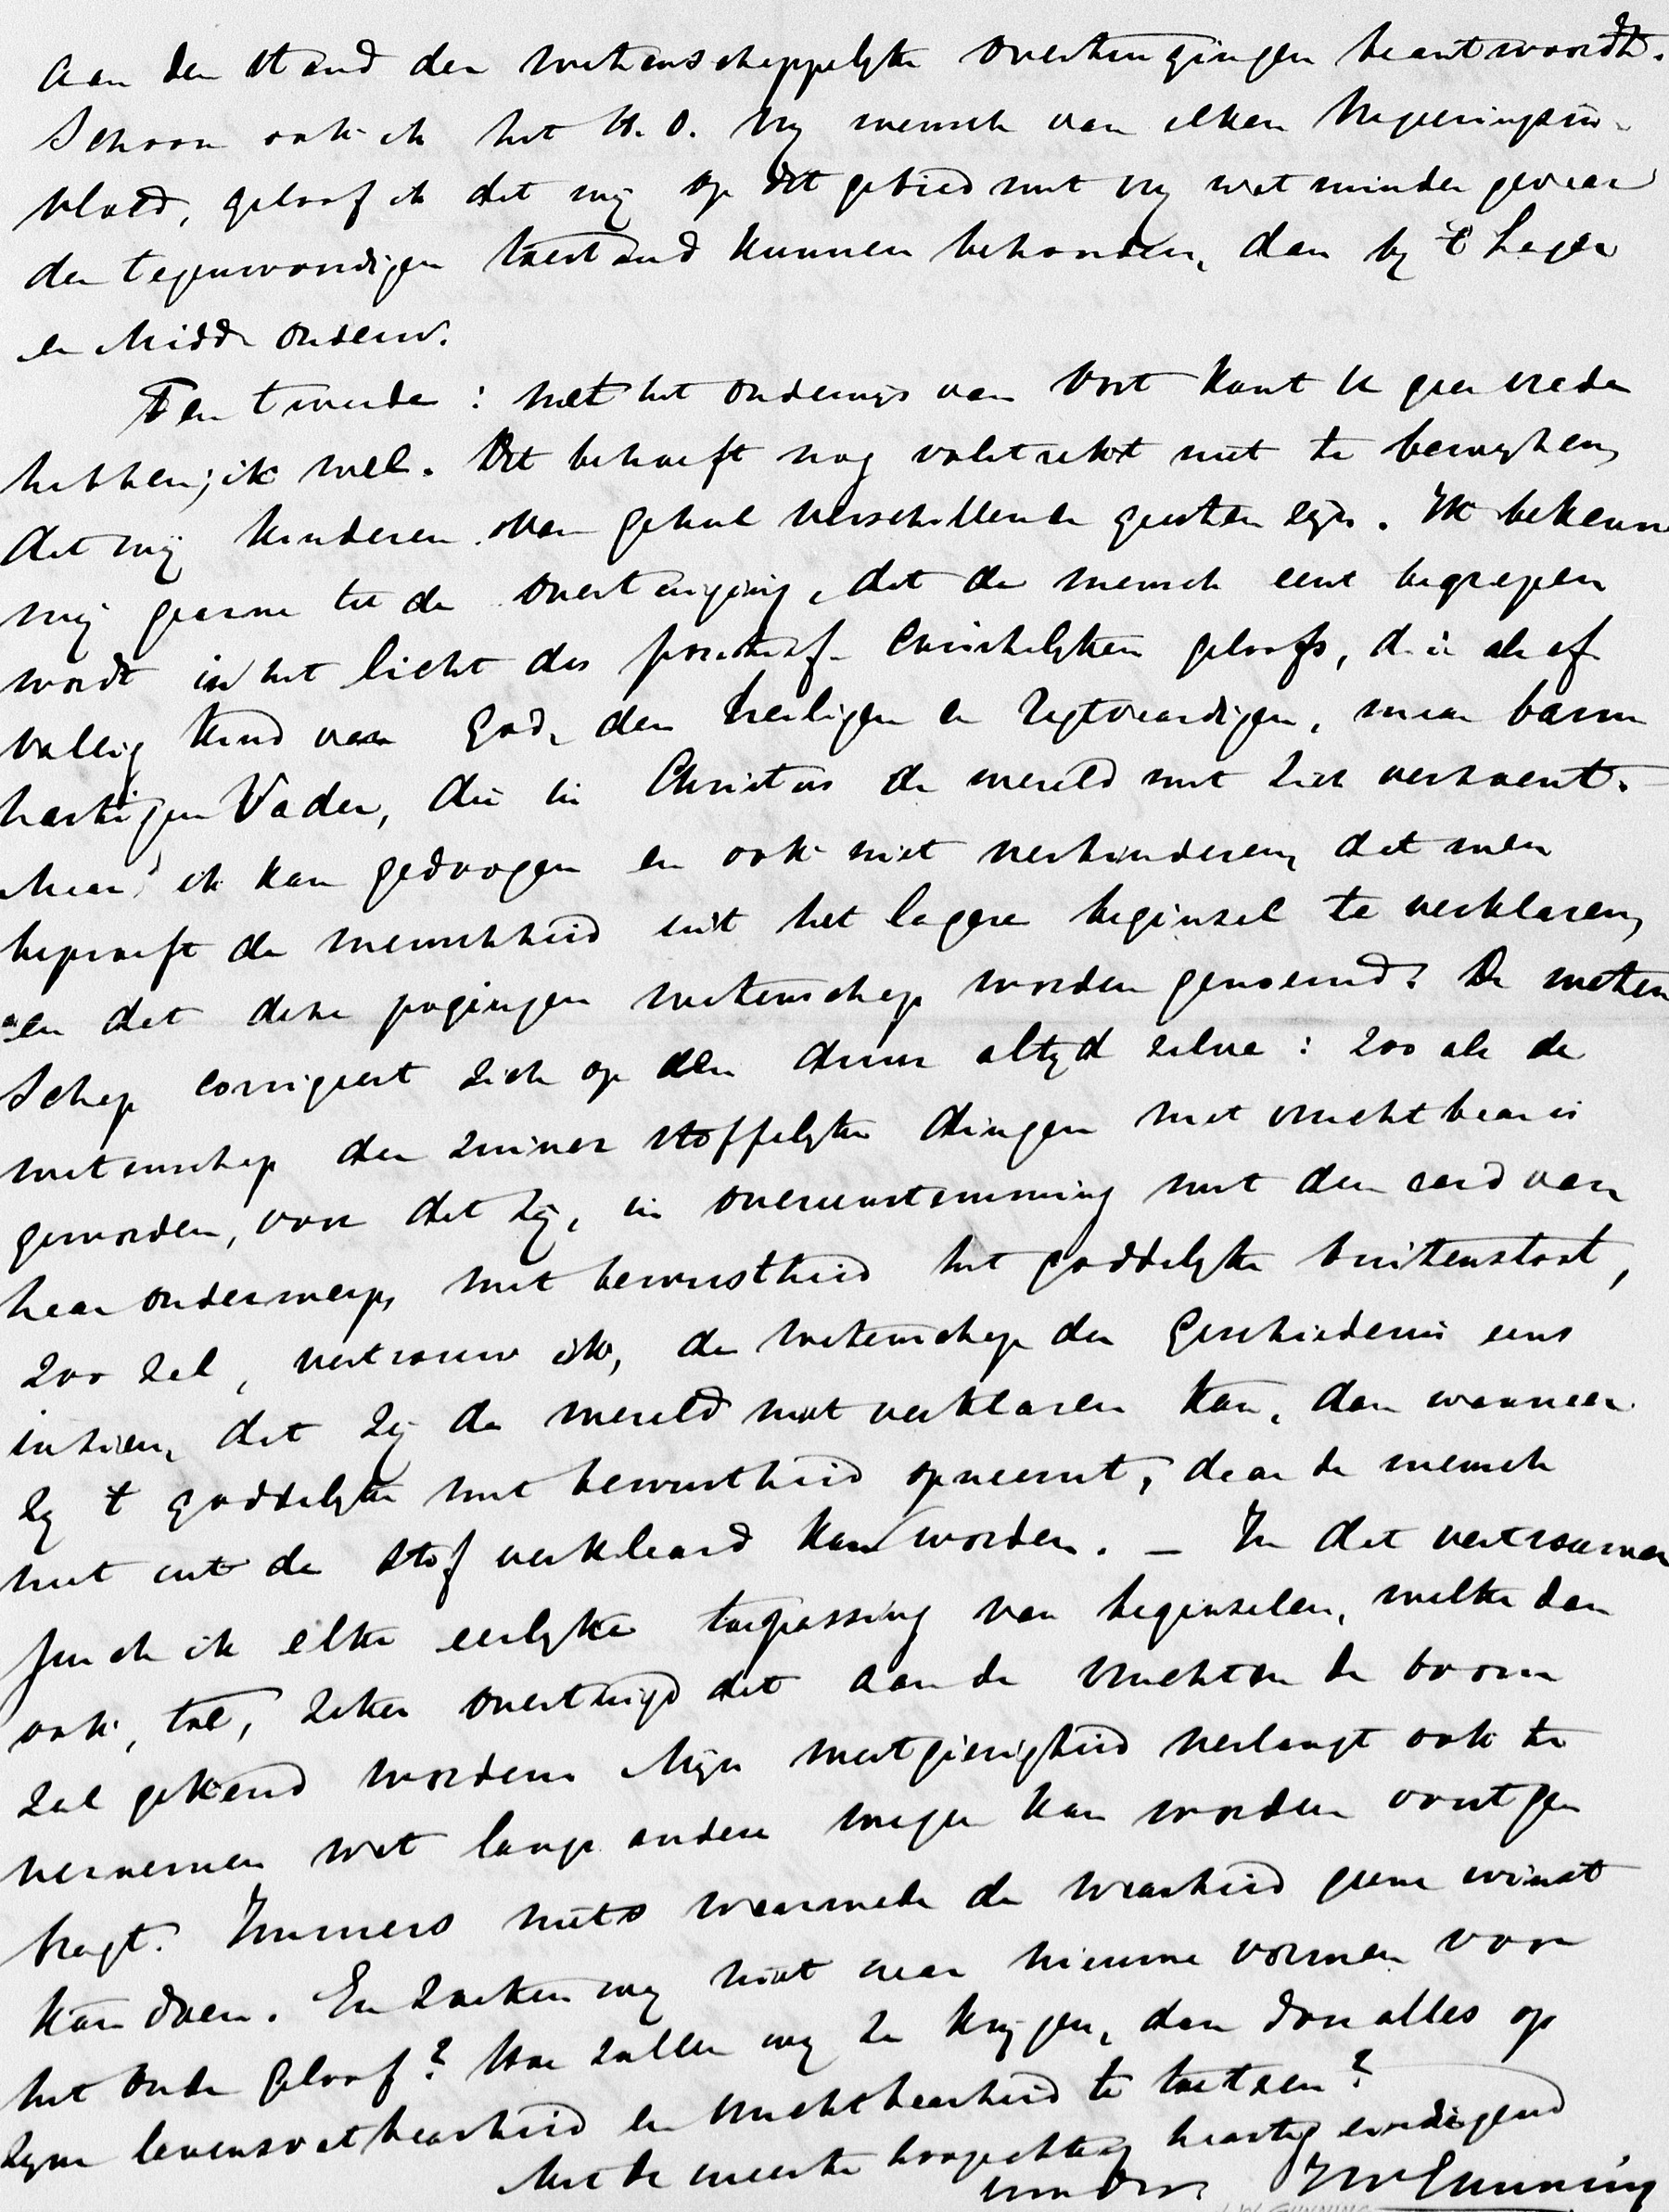 aan den stand der wetenschappelyke overtuigingen beantwoordt.
Schoon ook ik het H. O. vry wensch van elken Regeeringsin-
vloed, geloof ik dat wij op dit gebied met vry wat minder gevaar
den tegenwoordigen toestand kunnen behouden, dan by 't Lager
en Midd. onderw.
Ten tweede: met het onderwijs van Vort kunt U geen vrede
hebben; ik wel. Dit behoeft nog volstrekt niet te bewyzen,
dat wij kinderen van geheel verschillende geesten zyn. Ik beken
mij gaarne tot de overtuiging, dat de mensch eerst begrepen
wordt in het licht des positief-Christelyken geloofs, d. i. als af
vallig kind van God, den heiligen en regtvaardigen, maar barm
hartigen Vader, die in Christus de wereld met zich verzoent.
Maar ik kan gedoogen en ook niet verhinderen, dat men
beproeft de menschheid uit het lagere beginsel te verklaren,
en dat deze pogingen wetenschap worden genoemd. De weten
schap corrigeert zich op den duur altyd zelve: zoo als de
wetenschap der zuiver stoffelyke dingen niet vruchtbaar is
geworden, voor dat zij, in overeenstemming met den aard van
haar onderwerp, met bewustheid het goddelyke buitensloot,
zoo zal, vertrouw ik, de wetenschap der geschiedenis eens
inzien, dat zij de wereld niet verklaren kan, dan wanneer
zy 't goddelyke met bewustheid opneemt, daar de mensch
niet uit de stof verklaard kan worden. – In dat vertrouwen
juich ik elke eerlyke toepassing van beginselen, welke dan
ook, toe, zeker overtuigd dat aan de vruchten de boom
zal gekend worden. Mijn weetgierigheid verlangt ook te
vernemen wat langs andere wegen kan worden voortge
bragt. Immers niets waarmede de waarheid geene winst
kan doen. En zoeken wy niet naar nieuwe vormen voor
het oude geloof? Hoe zullen wy ze krygen, dan door alles op
zyne levensvatbaarheid en vruchtbaarheid te toetsen?
Met de meeste hoogachting hartig eerbiedigend
JWGunning
J.W. GUNNING